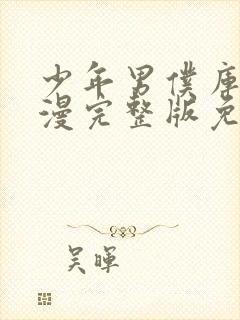 少年男僕庫
漫完整版免
吴暉